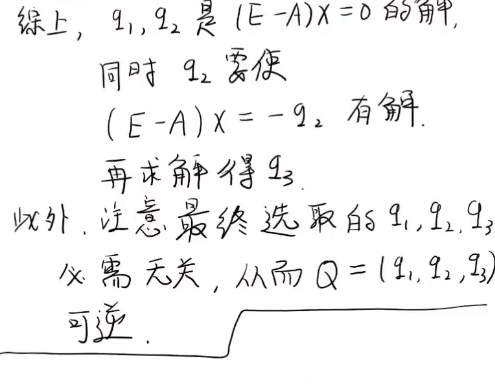 综上, q₁, q₂ 是 (E-A)X=0 的解,
同时 q₂ 要使
(E-A)X=-q₂ 有解.
再求解得 q₃.
此外, 注意最终选取的 q₁, q₂, q₃
必需无关, 从而 Q=(q₁, q₂, q₃)
可逆.